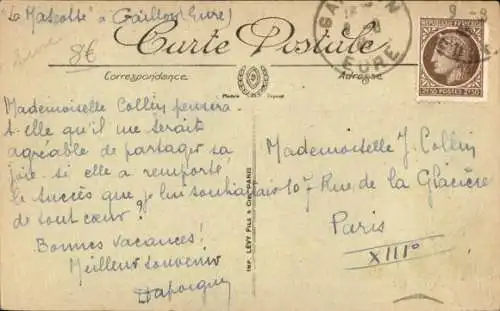 La Mascotte à Gaillon (Eure)
8€
Carte Postale
Correspondance
Adresse
GAILLON
EURE
REPUBLIQUE FRANÇAISE
2F50 POSTES 2F50
Mademoiselle Collin pensera
t-elle qu'il me serait
agréable de partager sa
joie si elle a remporté
le succès que je lui souhaitais
de tout cœur ?
Bonnes vacances !
Meilleur souvenir
IMP. LÉVY FILS & Cie PARIS
Mademoiselle J. Collin
107 Rue de la Glacière
Paris
XIIIº